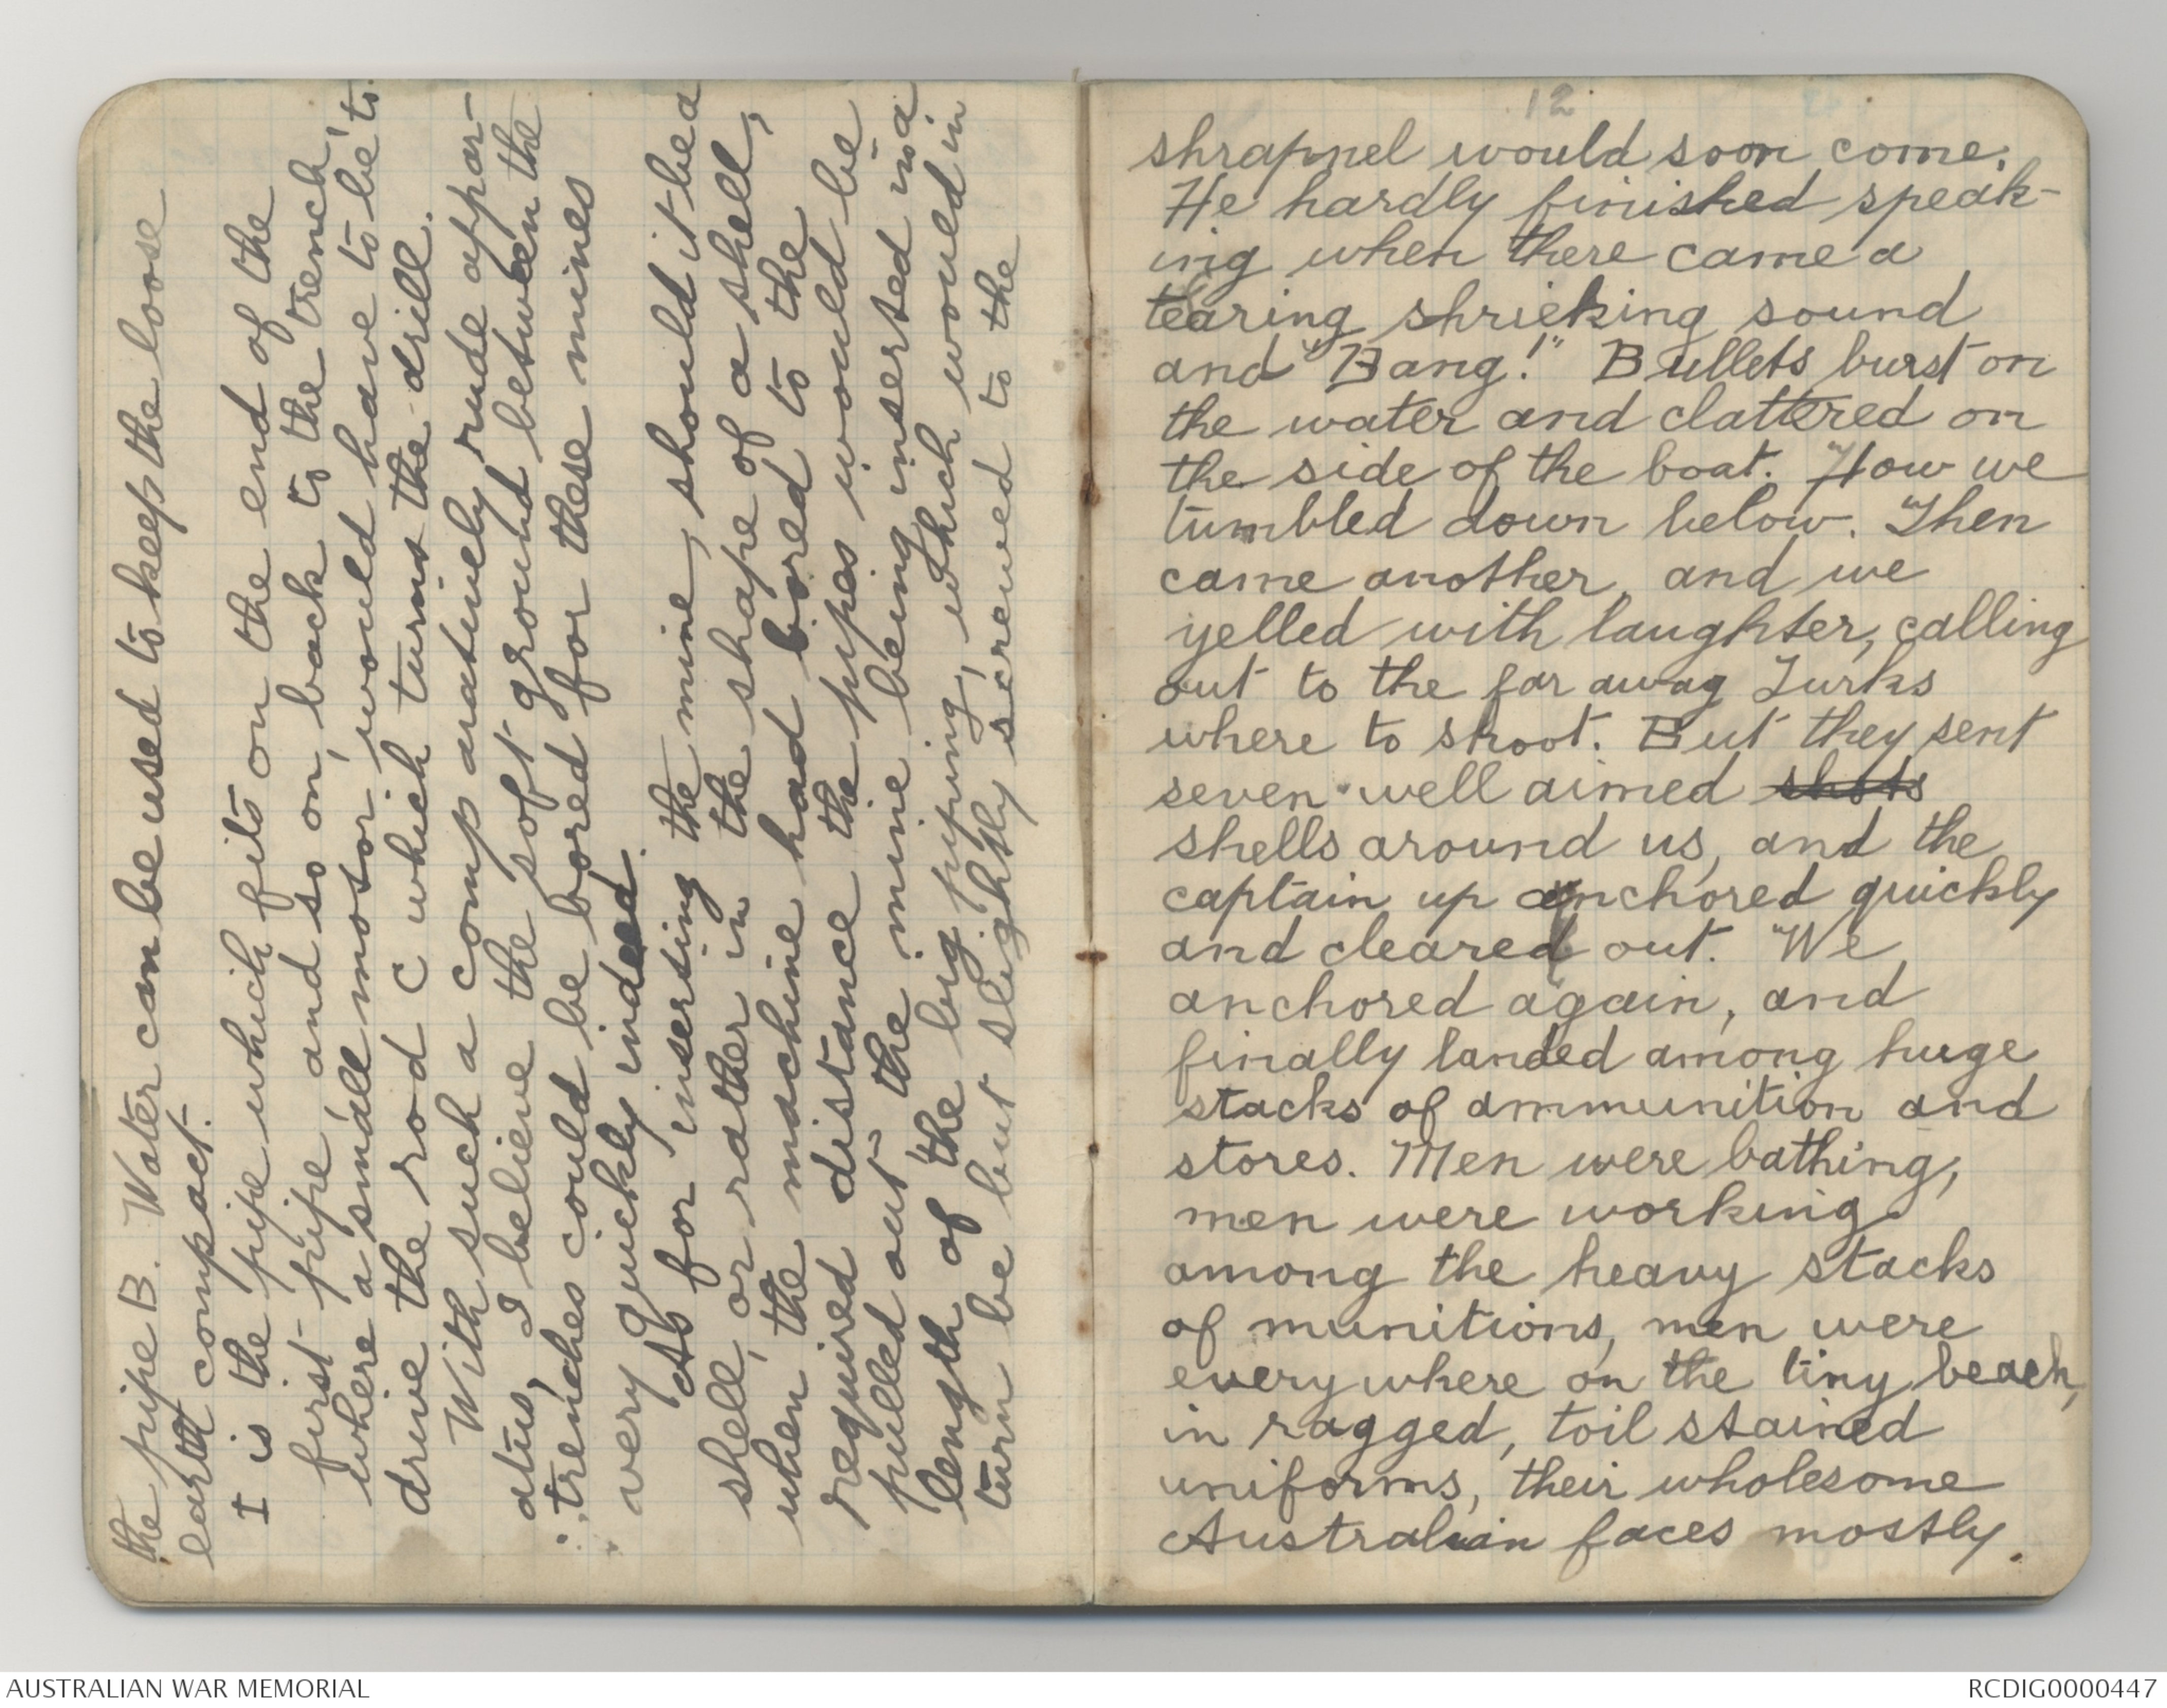 the pipe B. Water can be used to keep the loose
earth compact.
I is the pipe which fits on the end of the
first pipe, and so on, back to the trench,
where a small motor would have to be to
drive the rod C which turns the drill.
With such a comparatively rude appar-
atus, I believe the soft ground between the
trenches could be bored for these mines
very quickly indeed.
As for inserting the mine, should it be a
shell, or rather in the shape of a shell,
when the machine had bored to the
required distance the pipes would be
pulled out, the mine being inserted in a
length of the big piping, which would in
turn be but slightly screwed to the
12
shrapnel would soon come.
He hardly finished speak-
ing when there came a
tearing shrieking sound
and "Bang!" Bullets burst on
the water and clattered on
the side of the boat. How we
tumbled down below. Then
came another, and we
yelled with laughter, calling
out to the far away Turks
where to shoot. But they sent
seven well aimed shots
shells around us, and the
captain up anchored quickly
and cleared out. We
anchored again, and
finally landed among huge
stacks of ammunition and
stores. Men were bathing,
men were working
among the heavy stacks
of munitions, men were
everywhere on the tiny beach,
in ragged, toil stained
uniforms, their wholesome
Australian faces mostly.
AUSTRALIAN WAR MEMORIAL
RCDIG0000447